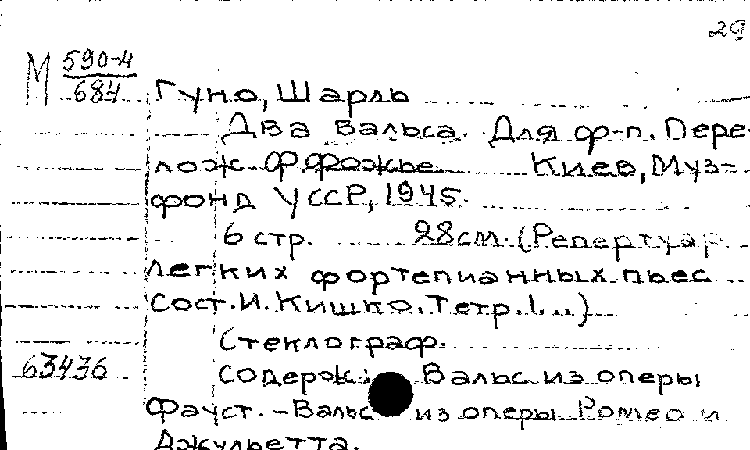 29
М 590-4
684
Гуно, Шарль
Два вальса. Для ф-п. Пере-
лож. Ф. Фрожье. Киев, Муз-
фонд УССР, 1945.
6 стр. 28 см. (Репертуар
легких фортепианных пьес
Сост. И. Кишко. Тетр. 1...)
Стеклограф.
63436
Содерж.: Вальс из оперы
Фауст. - Вальс из оперы Ромео и
Джульетта.